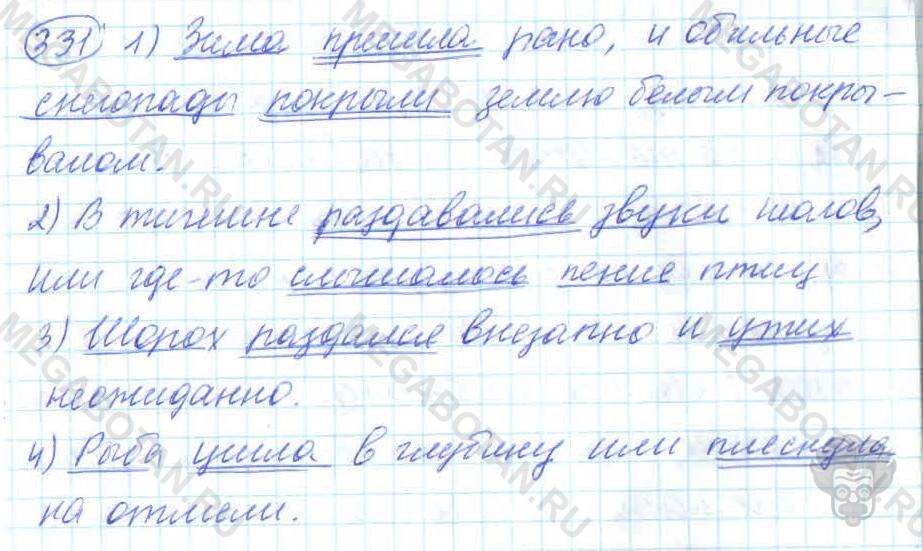 331 1) Зима пришла рано, и обильные
снегопады покрыли землю белым покры-
валом.
2) В тишине раздавались звуки шагов,
или где-то слышалось пение птиц
3) Шорох раздался внезапно и утих
неожиданно.
4) Рыба ушла в глубину или плеснула
на отмели.
MEGABOTAN.RU